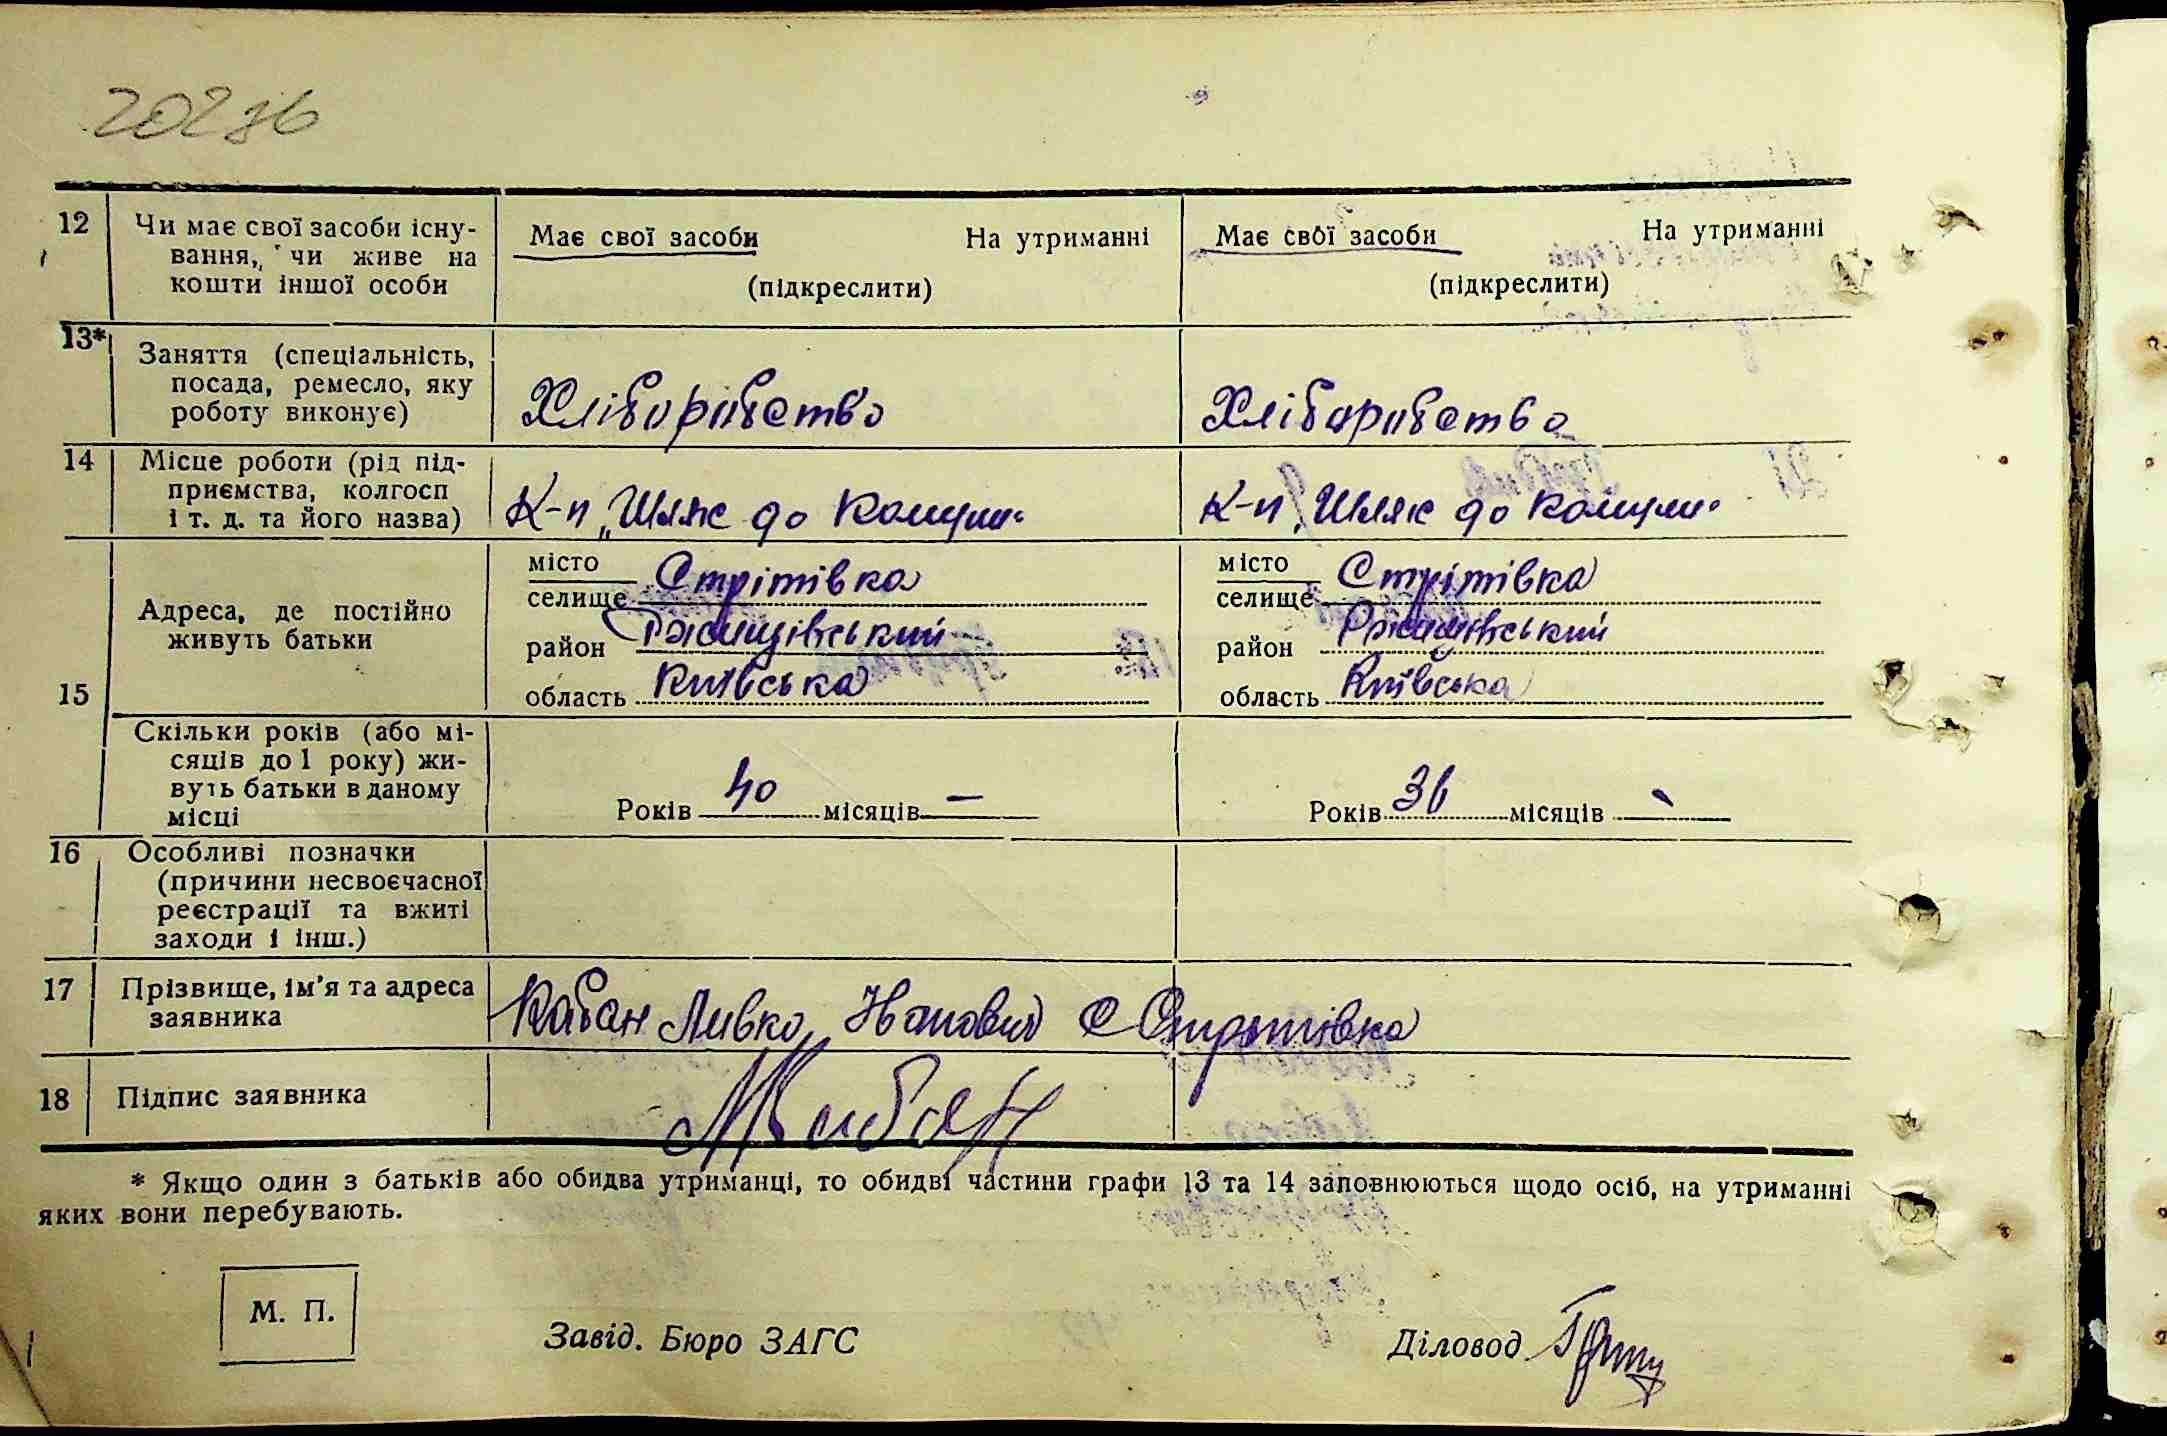 202зв
12 Чи має свої засоби існу-
вання, чи живе на
кошти іншої особи
Має свої засоби На утриманні
(підкреслити)
Має свої засоби На утриманні
(підкреслити)
13* Заняття (спеціальність,
посада, ремесло, яку
роботу виконує)
Хліборобство
Хліборобство
14 Місце роботи (рід під-
приємства, колгосп
і т. д. та його назва)
К-п „Шлях до Комуни"
К-п „Шлях до Комуни"
15 Адреса, де постійно
живуть батьки
місто
селище Стрітівка
район Ржищівський
область Київська
місто
селище Стрітівка
район Ржищівський
область Київська
Скільки років (або мі-
сяців до 1 року) жи-
вуть батьки в даному
місці
Років 40 місяців —
Років 36 місяців -
16 Особливі позначки
(причини несвоєчасної
реєстрації та вжиті
заходи і інш.)
17 Прізвище, ім'я та адреса
заявника
Кабан Ливко Іванович С Стритівка
18 Підпис заявника
Кабан
* Якщо один з батьків або обидва утриманці, то обидві частини графи 13 та 14 заповнюються щодо осіб, на утриманні
яких вони перебувають.
М. П.
Завід. Бюро ЗАГС
Діловод